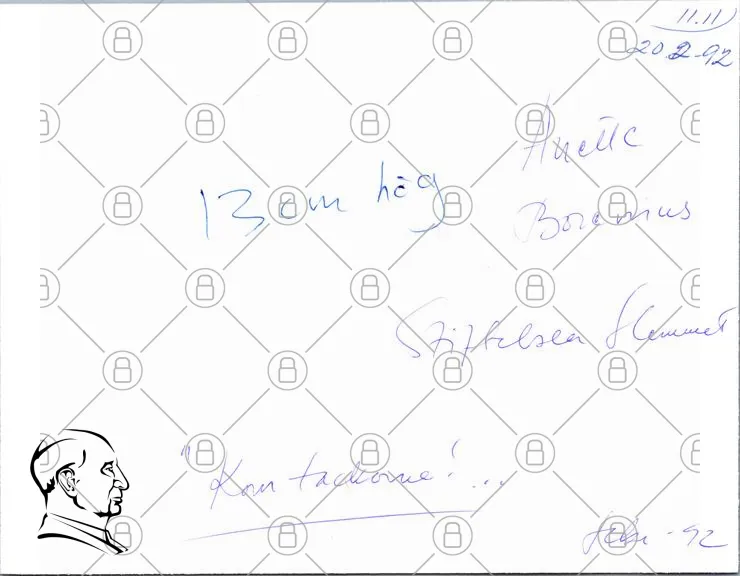 11.11
20.2-92
Anette
Borenius
13 cm hög
Stiftelsen Hemmet
"Kom tackorne! ...
febr - 92